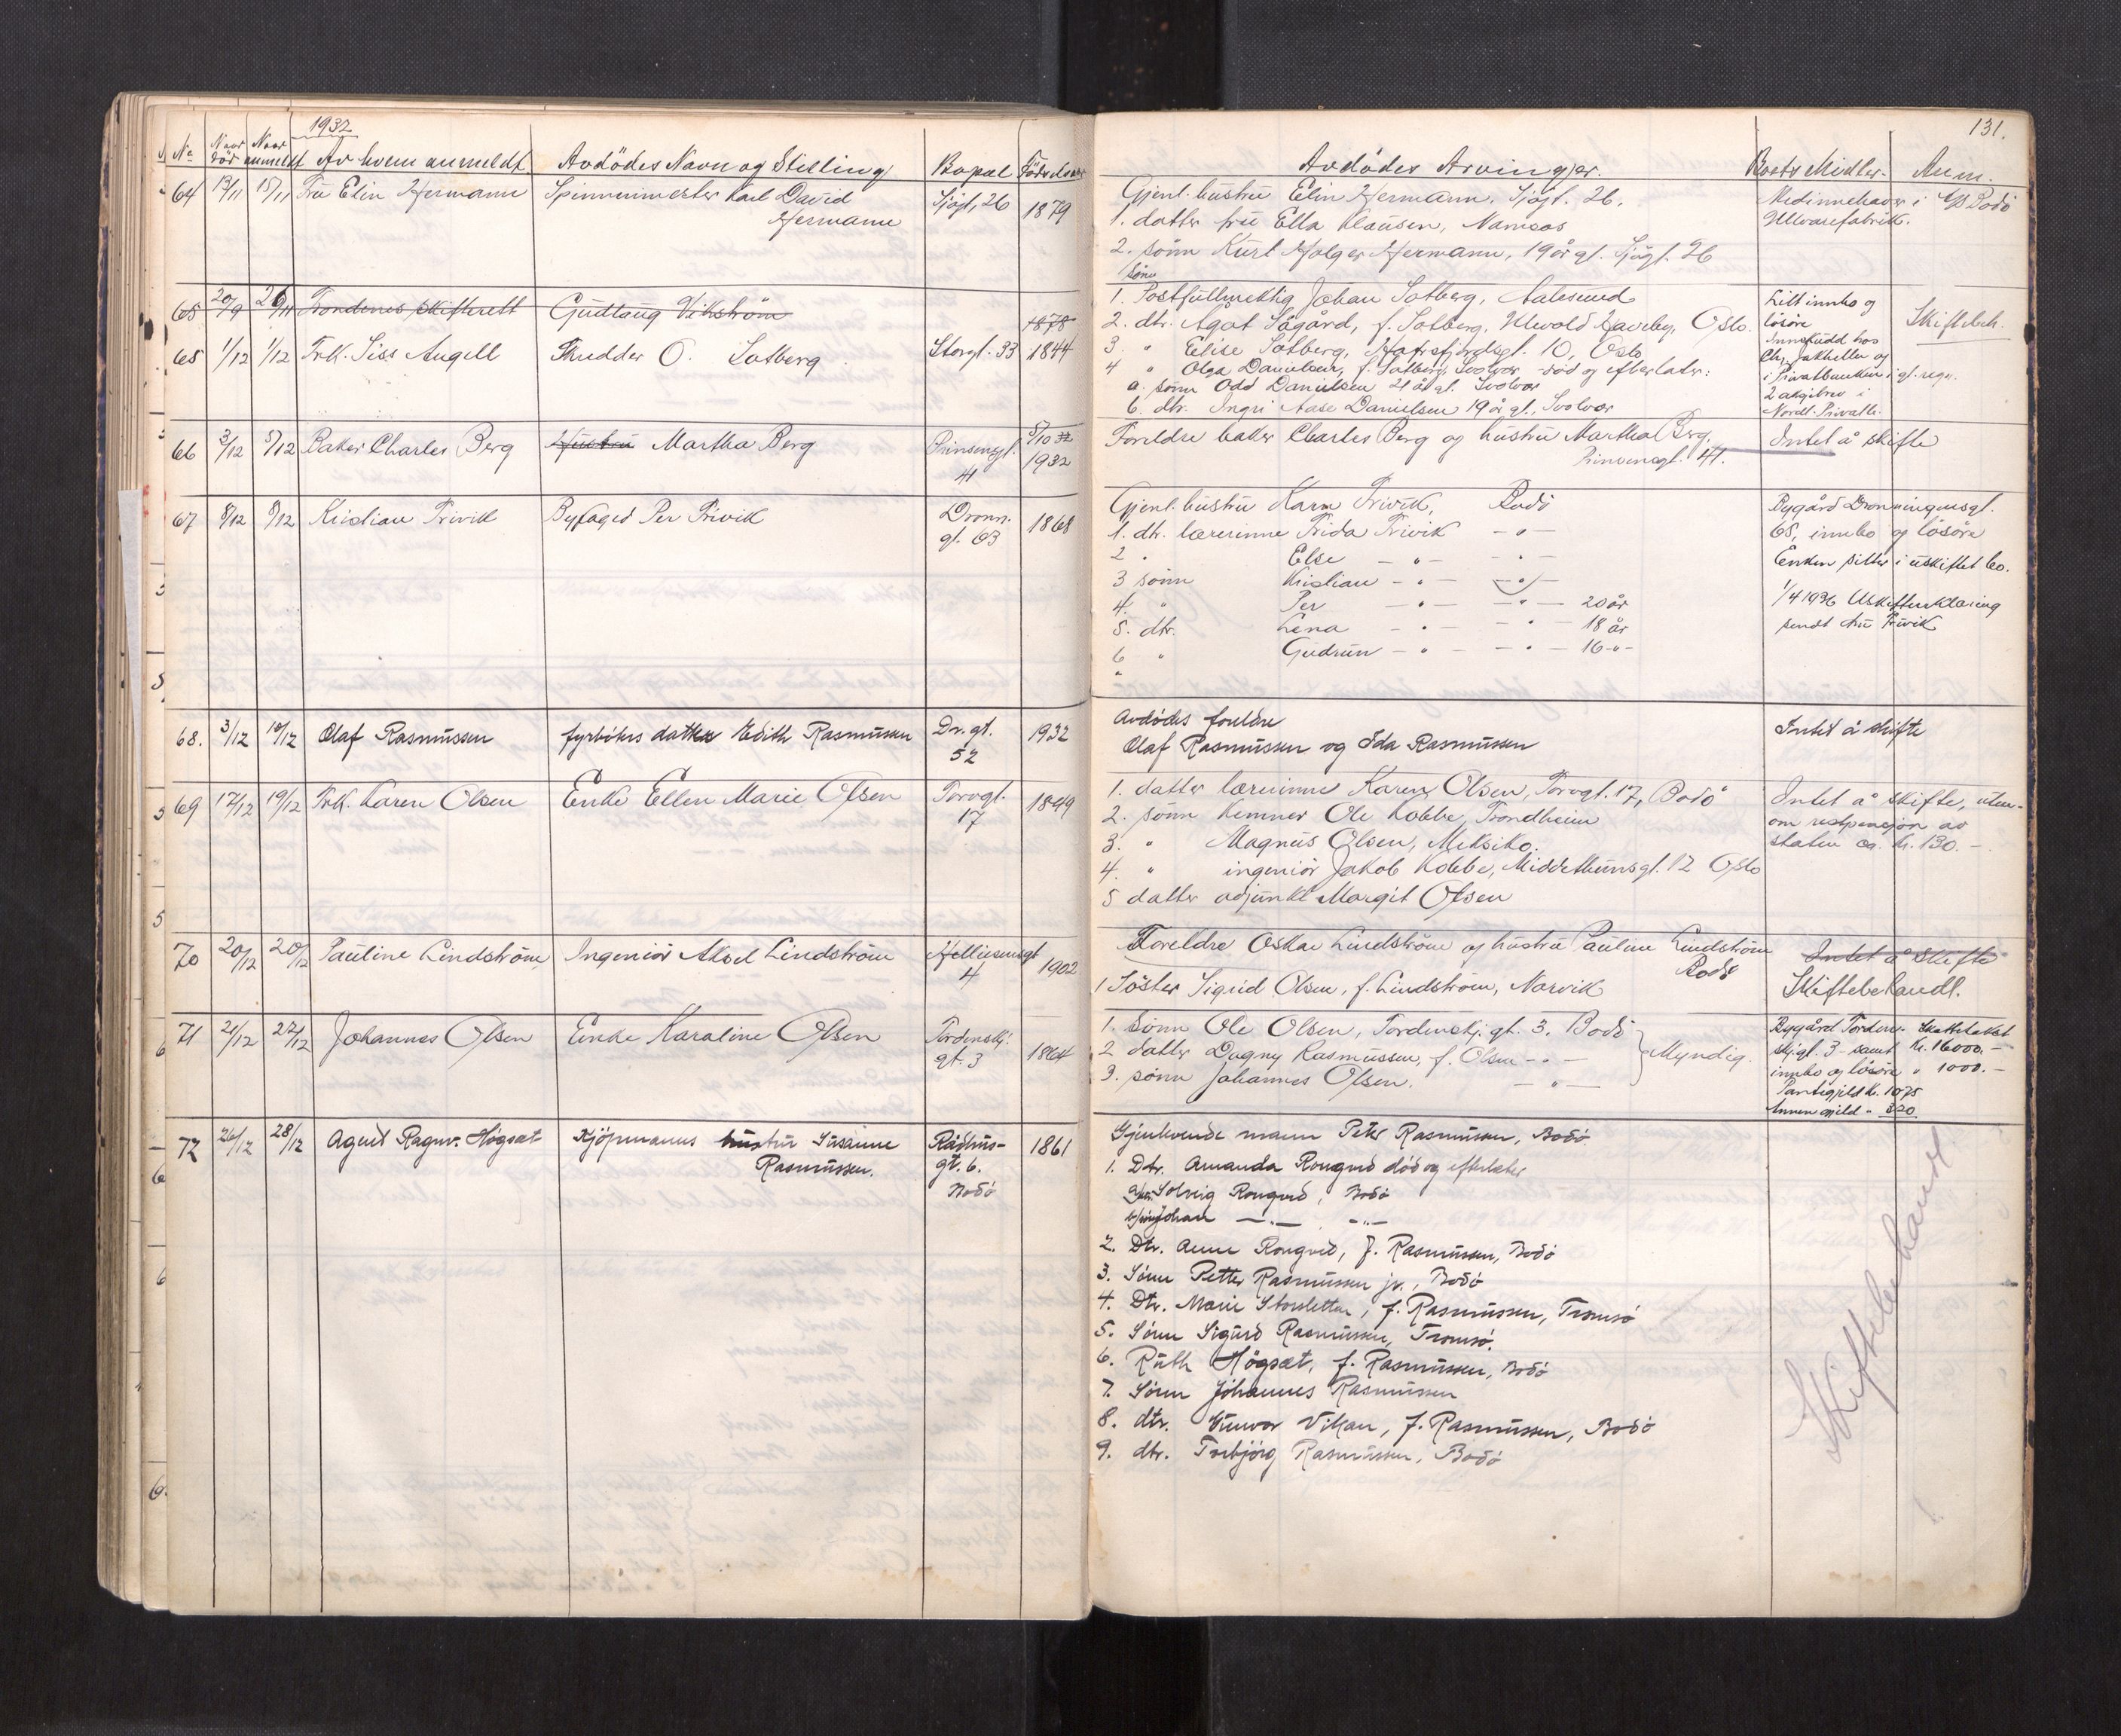 1932
No Naar död Naar anmeldt Av hvem anmeldt Avdödes Navn og Stilling Bopæl Födselsaar
64 13/11 15/11 Fru Elin Hermann Spinnemester Karl David Sjögt. 26 1879
Hermann
65 20/9 26/11 Trondenes skifterett Gudlaug Vikström 1878
65 1/12 1/12 Frk. Siss Angell Skredder O. Solberg Storgt. 33 1844
66 3/12 5/12 Baker Charles Berg Hustru Martha Berg Prinsensgt. 41 5/10 32 1932
67 8/12 9/12 Kristian Trivik Byfoged Per Trivik Dronn. gt. 63 1868
68. 3/12 10/12 Olaf Rasmussen fyrböters datter Edith Rasmussen Dr.gt. 52 1932
69 17/12 19/12 Frk. Karen Olsen Enke Ellen Marie Olsen Torvgt. 17 1849
70 20/12 20/12 Pauline Lindström Ingeniör Aksel Lindström Hellesensgt 4 1902
71 21/12 22/12 Johannes Olsen Enke Karoline Olsen Tordenskj. gt. 3 1864
72 26/12 28/12 Agent Ragnv. Högsæt Kjöpmanns hustru Susanne Rådhus- 1861
Rasmussen. gt. 6.
Bodö
131.
Avdödes Arvinger. Boets Midler. Anm.
Gjenl. hustru Elin Hermann, Sjögt. 26. Medinnehaver i A/S Bodö
1. datter fru Ella Clausen, Namsos Ullvarefabrikk.
2. sönn Kurt Holger Hermann, 19 år gl. Sjögt. 26
sönn
1. Postfullmektig Johan Solberg, Aalesund Litt innbo og
2. dtr. Ågot Sögård, f. Solberg, Ullevold Haveby, Oslo. lösöre Skiftebeh.
3. " Elise Solberg, Hafrsfjordsgt. 10, Oslo Innskudd hos
4 " Olga Danielsen, f. Solberg, Svolvær död og efterlater: Chr. Jakhelln og
a. sönn Odd Danielsen 21 år gl. Svolvær i Privatbanken i gl. regn.
b. dtr. Ingri Aase Danielsen 19 år gl., Svolvær 2 aksjebrev i
Nordl. Privatb.
Foreldre baker Charles Berg og hustru Martha Berg, Intet å skifte
Prinsensgt. 41.
Gjenl. hustru Karn Trivik, Bodö Bygård Dronningensgt.
1. dtr. lærerinne Frida Trivik — " — 65, innbo og lösöre
2 " Else — " — — " — Enken sitter i uskiftet bo.
3 sönn Kristian — " — — " —
4. " Per — " — — " — 20 år 1/4 1936 Uskifteerklæring
5. dtr. Lena — " — — " — 18 år sendt fru Trivik
6 " Gudrun — " — — " — 16 — " —
Avdödes foreldre Intet å skifte
Olaf Rasmussen og Ida Rasmussen
1. datter lærerinne Karen Olsen, Torvgt. 17, Bodö Intet å skifte, uten-
2. sönn Kemner Ole Kobbe, Trondheim om restpensjon av
3. " Magnus Olsen, Meksiko. staten ca. kr. 130.—
4. " ingeniör Jakob Kobbe, Middelthunsgt. 12 Oslo
5 datter adjunkt Margit Olsen
Foreldre Oskar Lindström og hustru Pauline Lindström Intet å skifte
Bodö
1 Söster Sigrid Olsen, f. Lindström, Narvik Skiftebehandl.
1. Sönn Ole Olsen, Tordenskj. gt. 3. Bodö Bygård Torden- Skattetakst
2 datter Dagny Rasmussen, f. Olsen — " — Myndig. skj.gt. 3 - samt kr. 16000.—
3. sönn Johannes Olsen. — " — innbo og lösöre " 1000.—
Pantegjeld kr. 1075
Annen gjeld " 320
Gjenlevende mann Peter Rasmussen, Bodö
1. Dtr. Amanda Rongved död og efterlater
a/ dtr. Solveig Rongved, Bodö
b/ sönn Johan — " — — " —
2. Dtr. Anne Rongved, f. Rasmussen, Bodö
3. Sönn Petter Rasmussen jr., Bodö
4. Dtr. Marie Storsletten, f. Rasmussen, Tromsö
5. Sönn Sigurd Rasmussen, Tromsö.
6. Ruth Högsæt, f. Rasmussen, Bodö
7. Sönn Johannes Rasmussen
8. dtr. Gunvor Vikan, f. Rasmussen, Bodö
9. dtr. Torbjörg Rasmussen, Bodö
Skiftebehandl